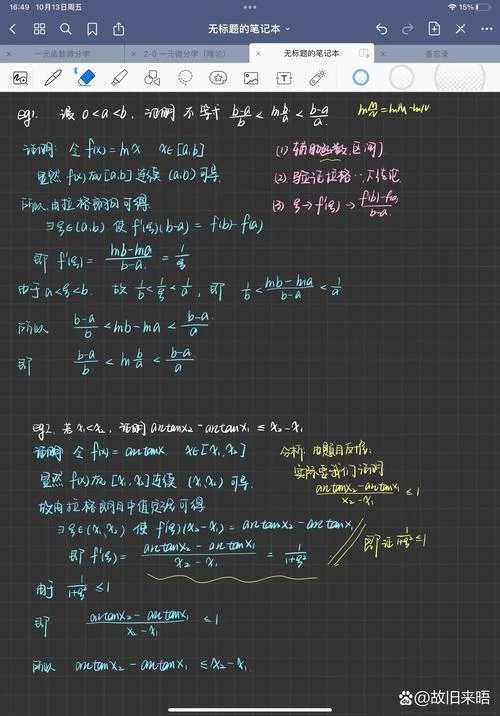 16:49 10月13日周五
15%
无标题的笔记本
一元函数微分学
2-0 一元微分学（理论）
无标题的笔记本
备忘录
eg1. 设 0<a<b. 证明不等式 (b-a)/b < ln b/a < (b-a)/a.
ln M/N = lnM-lnN
证明: 令 f(x)=lnx x∈[a,b]
(1) 辅助函数, 区间
显然 f(x) 在 [a,b] 连续 (a,b) 可导
(2) 验证拉格…下结论
所以由拉格朗日可得
(3) ξ→f'(ξ)→(f(b)-f(a))/(b-a)
∃ξ∈(a,b) 使 f'(ξ)(b-a) = f(b)-f(a)
即 f'(ξ) = (lnb-lna)/(b-a) = 1/ξ
由于 a<ξ<b. 故 1/b<1/ξ<1/a, 即 1/b < (lnb-lna)/(b-a) < 1/a
所以 (b-a)/b < lnb-lna < (b-a)/a
即 (b-a)/b < ln b/a < (b-a)/a.
eg2. 若 x₁<x₂, 证明 arctanx₂-arctanx₁ ≤ x₂-x₁
证明: 令 f(x)=arctanx. x∈[x₁,x₂]
分析: 由题目反推.
显然 f(x) 在 [x₁,x₂] 连续 (x₁,x₂) 可导.
实际要我们证明
(arctanx₂-arctanx₁)/(x₂-x₁) ≤1
故由拉格朗日中值定理可得
∃ξ∈(x₁,x₂) 使 f'(ξ)(x₂-x₁) = arctanx₂-arctanx₁
即证 1/(1+ξ²) ≤1
即 f'(ξ) = (arctanx₂-arctanx₁)/(x₂-x₁) = 1/(1+ξ²)
由于 1/(1+ξ²) ≤1
即 (arctanx₂-arctanx₁)/(x₂-x₁) ≤1
所以 arctanx₂-arctanx₁ ≤x₂-x₁.
@故旧来晤